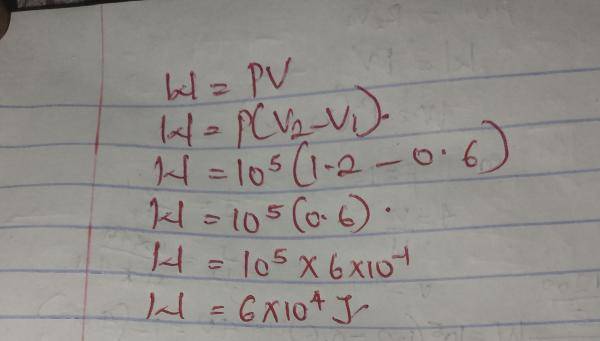 W = PV
W = P(V₂–V₁).
W = 10⁵(1·2 – 0·6)
W = 10⁵(0·6).
W = 10⁵ × 6×10⁻¹
W = 6×10⁴ J